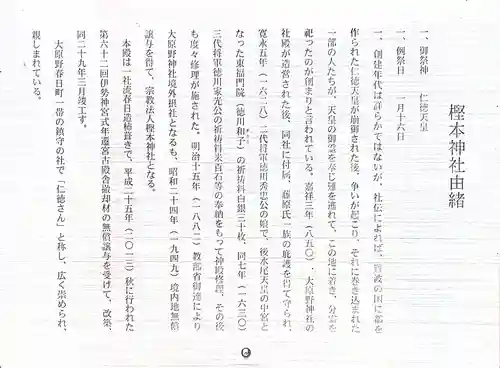 樫本神社由緒
一、御祭神　仁徳天皇
一、例祭日　二月十六日
一、創建年代は詳らかではないが、社伝によれば、難波の国に都を
作られた仁徳天皇が崩御された後、争いが起こり、それに巻き込まれた
一部の人たちが、天皇の御霊を奉じ難を逃れて、この地に着き、分霊を
祀ったのが創まりと言われている。嘉祥三年（八五〇）、大原野神社の
社殿が造営された後、同社に付属、藤原氏一族の庇護を得て守られ、
寛永五年（一六二八）二代将軍徳川秀忠公の娘で、後水尾天皇の中宮と
なった東福門院（徳川和子）の祈祷料白銀三十枚、同七年（一六三〇）
三代将軍徳川家光公の祈祷料米百石等の奉納をもって神殿修理、その後
も度々修理が施された。明治十五年（一八八二）教部省御達により
大原野神社境外摂社となるも、昭和二十四年（一九四九）境内地無償
譲与を得て、宗教法人樫本神社となる。
本殿は一社流春日造檜葺きで、平成二十五年（二〇一三）秋に行われた
第六十二回伊勢神宮式年遷宮古殿舎撤却材の無償譲与を受けて、改築、
同二十九年三月竣工す。
大原野春日町一帯の鎮守の社で「仁徳さん」と称し、広く崇められ、
親しまれている。